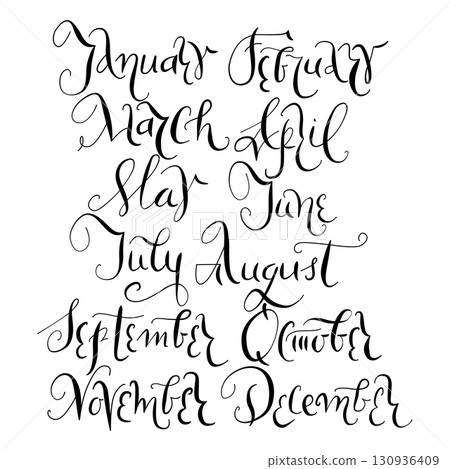 January February
March April
May June
July August
September October
November December
PIXTA
pixta.jp - 130936409